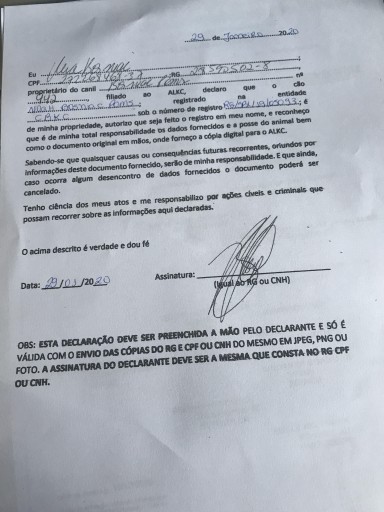 29 de Janeiro 2020
Eu
CPF RG nº
proprietário do canil
442, filiado ao ALKC, declaro que o cão
registrado na entidade
CBKC sob o número de registro ; é
de minha propriedade, autorizo que seja feito o registro em meu nome, e reconheço
que é de minha total responsabilidade os dados fornecidos e a posse do animal bem
como o documento original em mãos, onde forneço a cópia digital para o ALKC.
Sabendo-se que quaisquer causas ou consequências futuras recorrentes, oriundos por
informações deste documento fornecido, serão de minha responsabilidade. E que ainda,
caso ocorra algum desencontro de dados fornecidos o documento poderá ser
cancelado.
Tenho ciência dos meus atos e me responsabilizo por ações cíveis e criminais que
possam recorrer sobre as informações aqui declaradas.
O acima descrito é verdade e dou fé
Data: 29/01/2020
Assinatura:
(Igual ao RG ou CNH)
OBS: ESTA DECLARAÇÃO DEVE SER PREENCHIDA A MÃO PELO DECLARANTE E SÓ É
VÁLIDA COM O ENVIO DAS CÓPIAS DO RG E CPF OU CNH DO MESMO EM JPEG, PNG OU
FOTO. A ASSINATURA DO DECLARANTE DEVE SER A MESMA QUE CONSTA NO RG CPF
OU CNH.